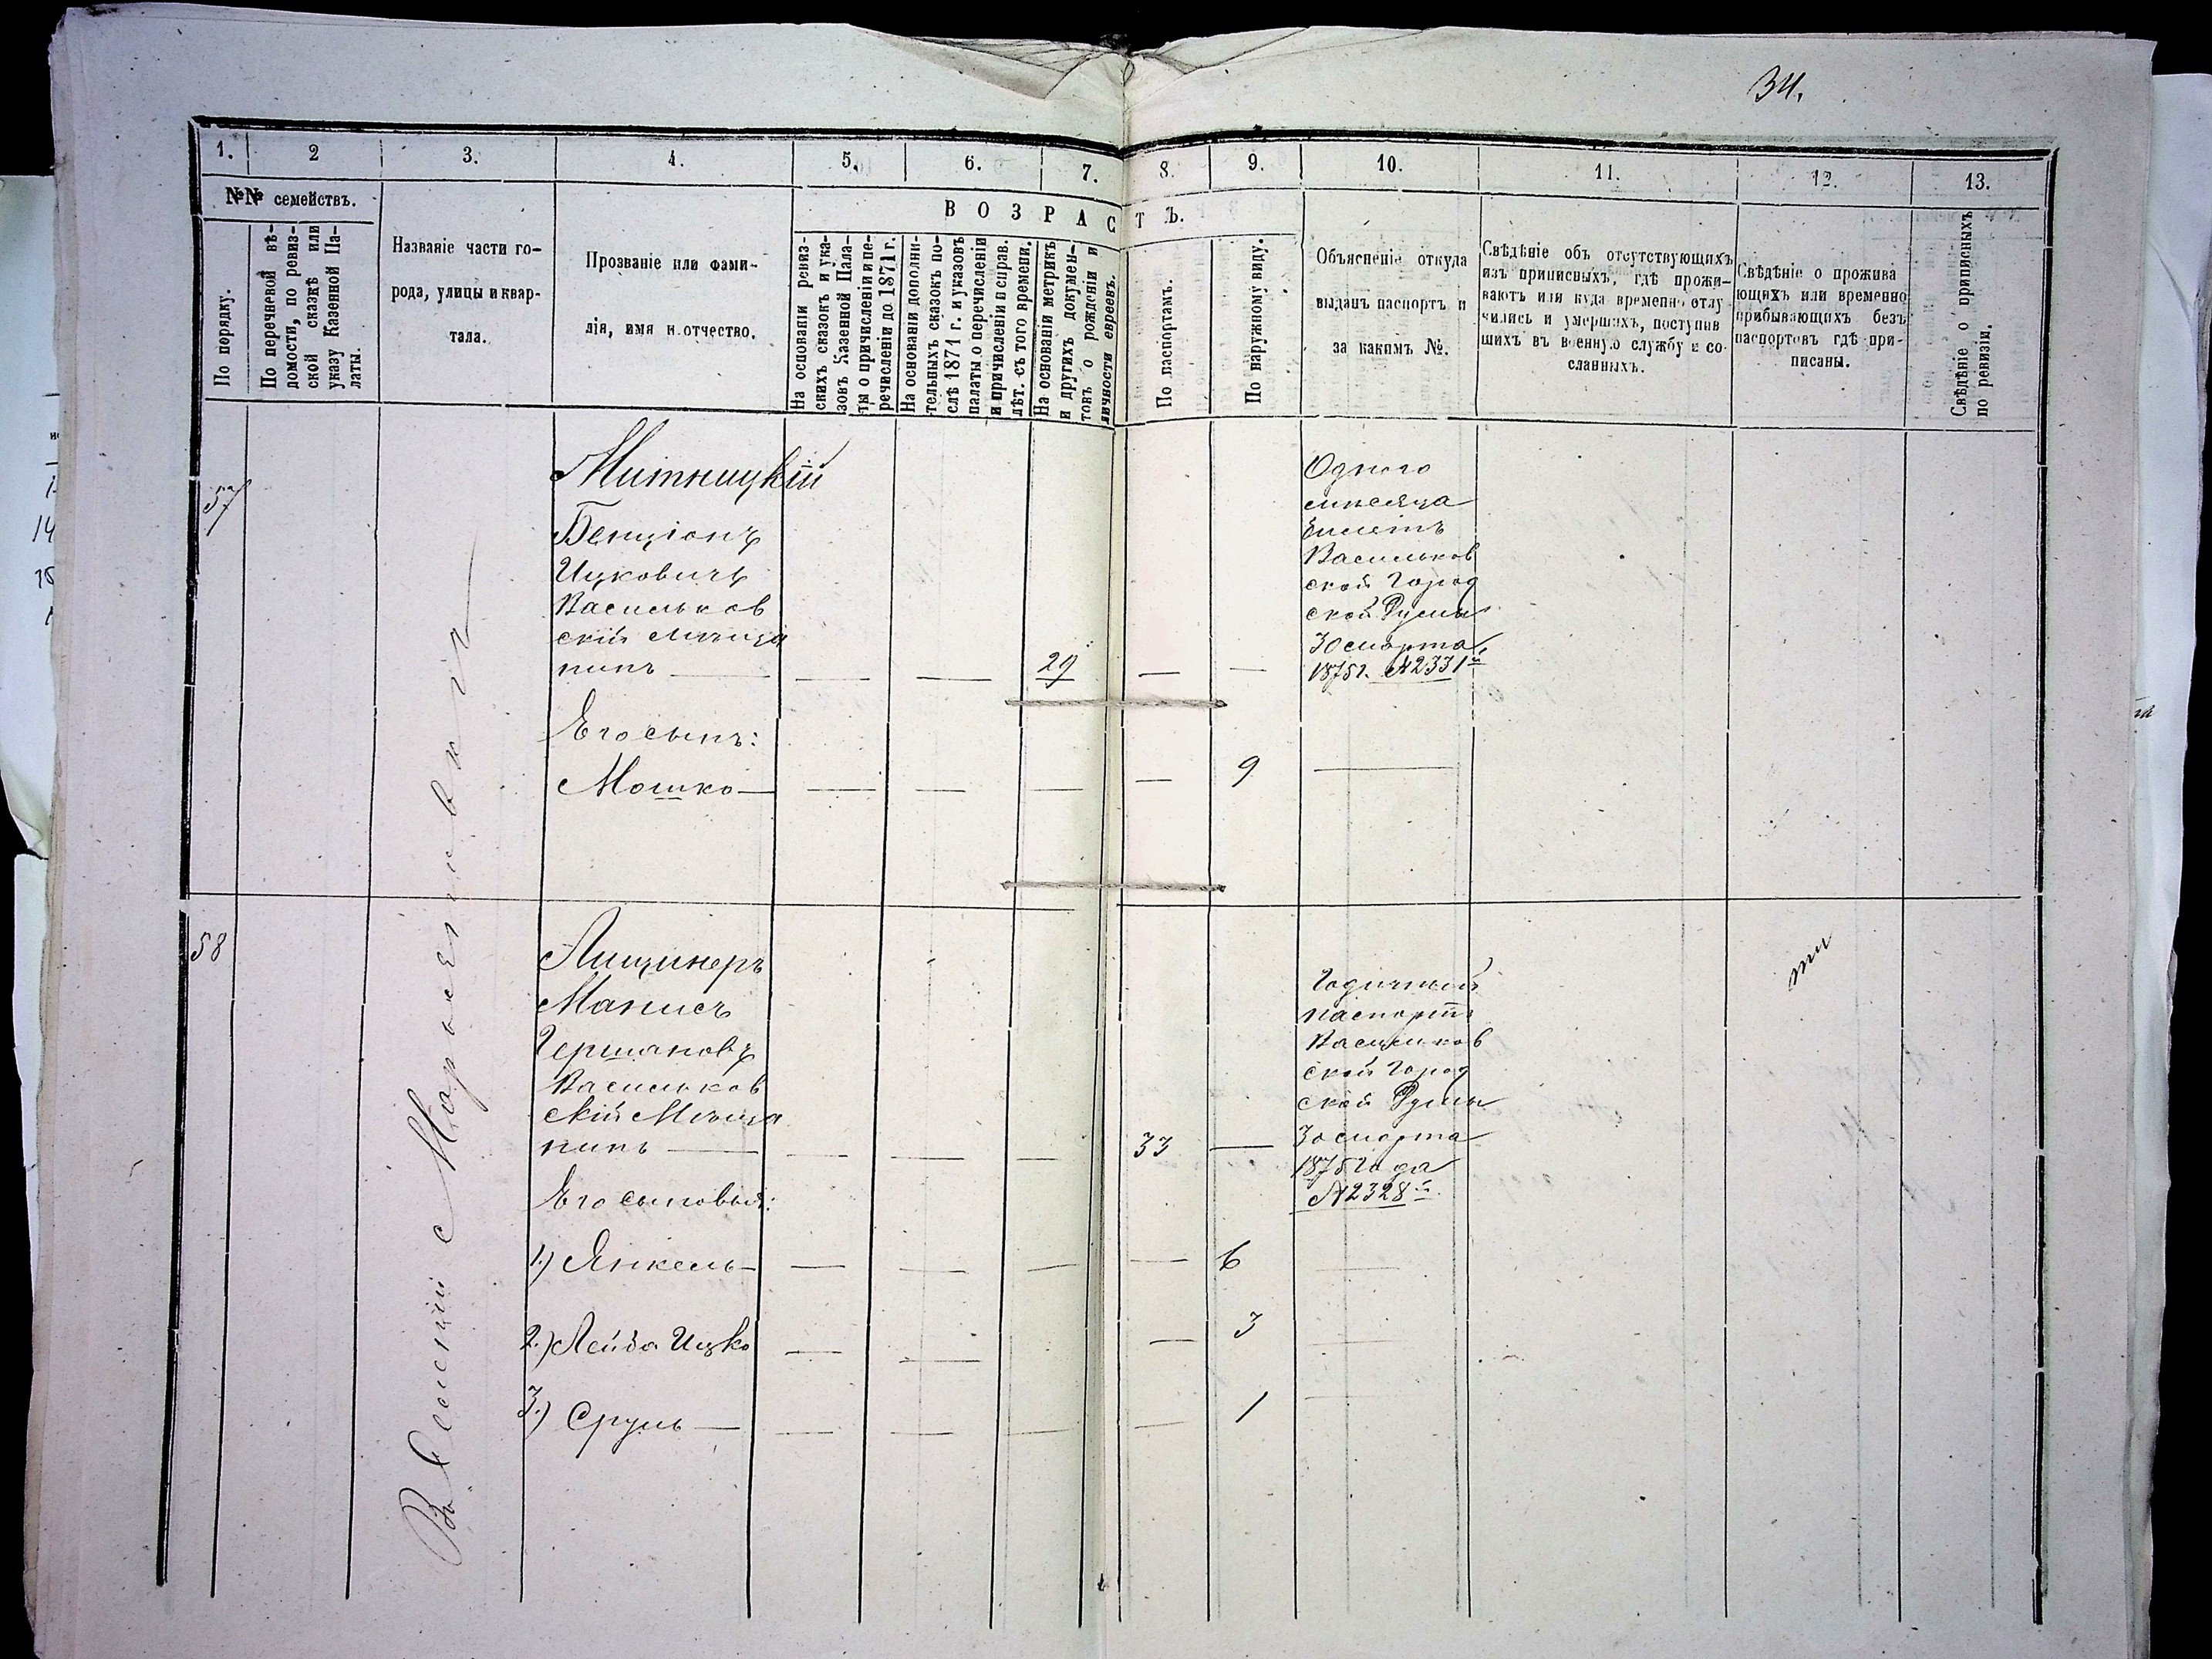 34.
1.
2
3.
4.
5.
6.
7.
8.
9.
10.
11.
12.
13.
№№ семействъ.
По порядку.
По перечневой вѣ-
домости, по ревиз-
ской сказкѣ или
указу Казенной Па-
латы.
Названіе части го-
рода, улицы и квар-
тала.
Прозваніе или фами-
лія, имя и отчество.
ВОЗРАСТЪ.
На основаніи ревиз-
скихъ сказокъ и ука-
зовъ Казенной Пала-
ты о причисленіи и пе-
речисленіи до 1871 г.
На основаніи дополни-
тельныхъ сказокъ по-
слѣ 1871 г. и указовъ
палаты о перечисленіи
и причисленіи и справ.
лѣт. съ того времени.
На основаніи метрикъ
и другихъ докумен-
товъ о рожденіи и
личности евреевъ.
По паспортамъ.
По наружному виду.
Объясненіе откуда
выданъ паспортъ и
за какимъ №.
Свѣдѣніе объ отсутствующихъ
изъ приписныхъ, гдѣ прожи-
ваютъ или куда временно отлу
чились и умершихъ, поступив
шихъ въ военную службу и со-
сланныхъ.
Свѣдѣніе о прожива
ющихъ или временно
прибывающихъ безъ
паспортовъ гдѣ при-
писаны.
Свѣдѣніе о приписныхъ
по ревизіи.
57
Митницкій
Бенціонъ
Ицковичъ
Васильков
скій мѣща
нинъ — — — 29 — —
Одного
мѣсяца
билетъ
Васильков
ской Город
ской Думы
30 марта
1875 г. №2331й
Его сынъ:
Мошко — — — — — 9 —
58
Лищинеръ
Манисъ
Гершановъ
Васильков
скій Мѣща
нинъ — — — — 33 —
Годичный
паспортъ
Васильков
ской Город
ской Думы
30 марта
1875 года
№2328й
Его сыновья:
1.) Янкель — — — — — 6 —
2.) Лейба Ицко — — — 3 —
3.) Сруль — — — — — 1 —